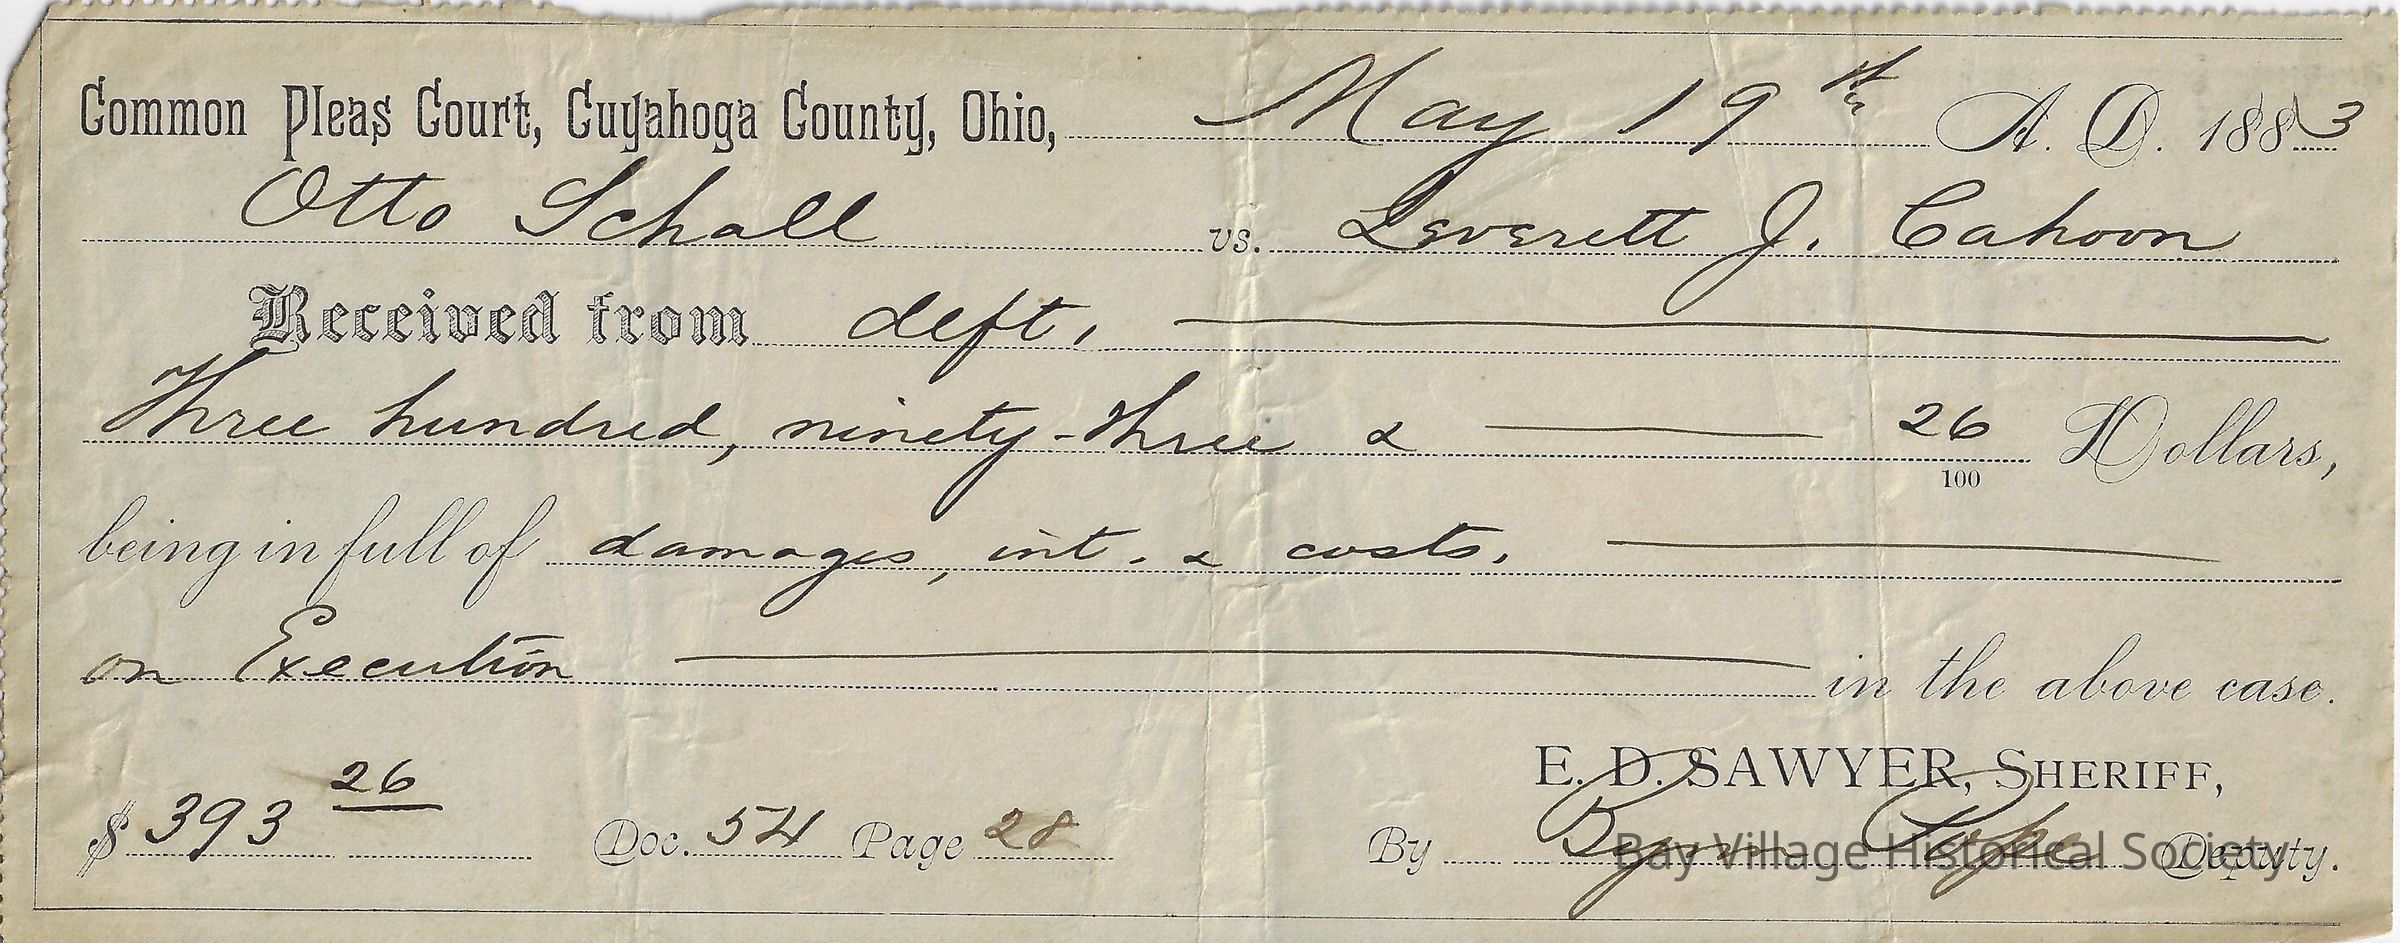 Common Pleas Court, Cuyahoga County, Ohio, May 19th A. D. 1883
Otto Schall vs. Leverett J. Cahoon
Received from deft.
Three hundred, ninety-three & 26/100 Dollars,
being in full of damages, int. & costs.
on Execution in the above case.
E. D. SAWYER, SHERIFF,
$ 393 26 Doc. 54 Page 28 By Pope Deputy.
Bay Village Historical Society